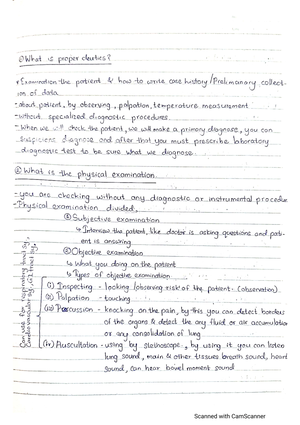 ① What is proper deuties?
* Examination the patient & how to write case history/Prelimanary collect-
ion of data
- about patient, by observing, palpation, temperature measurement
- without specialized diagnostic procedures.
- When we will check the patient, we will make a primary diagnose, you can
suspicions diagnose and after that you must prescribe laboratory
diagnostic test to be sure what we diagnose.
② What is the physical examination.
- you are checking without any diagnostic or instrumental procedure
- Physical examination divided,
① Subjective examination
↳ Interview the patient, like doctor is acting questions and pati-
ent is answering
② Objective examination
↳ What you doing on the patient
↳ Types of objective examination.
(i) Inspecting - looking /observing risk of the patient (observation).
(ii) Palpation - touching
(iii) Percussion - knocking on the pain, by this you can detect borders
of the organs & detect the any fluid or air accumulation
or any consolidation of lung
(iv) Auscultation - using by stethoscope, by using it you can listen
lung sound, main & other tissues breath sound, heart
sound, can hear bowel moment sound
can use for respiratory tract sys,
cardiovascular sys, GI tract sys
Scanned with CamScanner